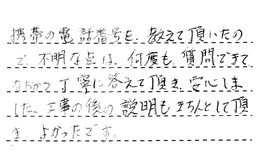 携帯の電話番号を、教えて頂いたの
で、不明な点は、何度も質問できて
なおかつ丁寧に答えて頂き、安心しま
した。工事の後の説明もきちんとして頂
き、よかったです。